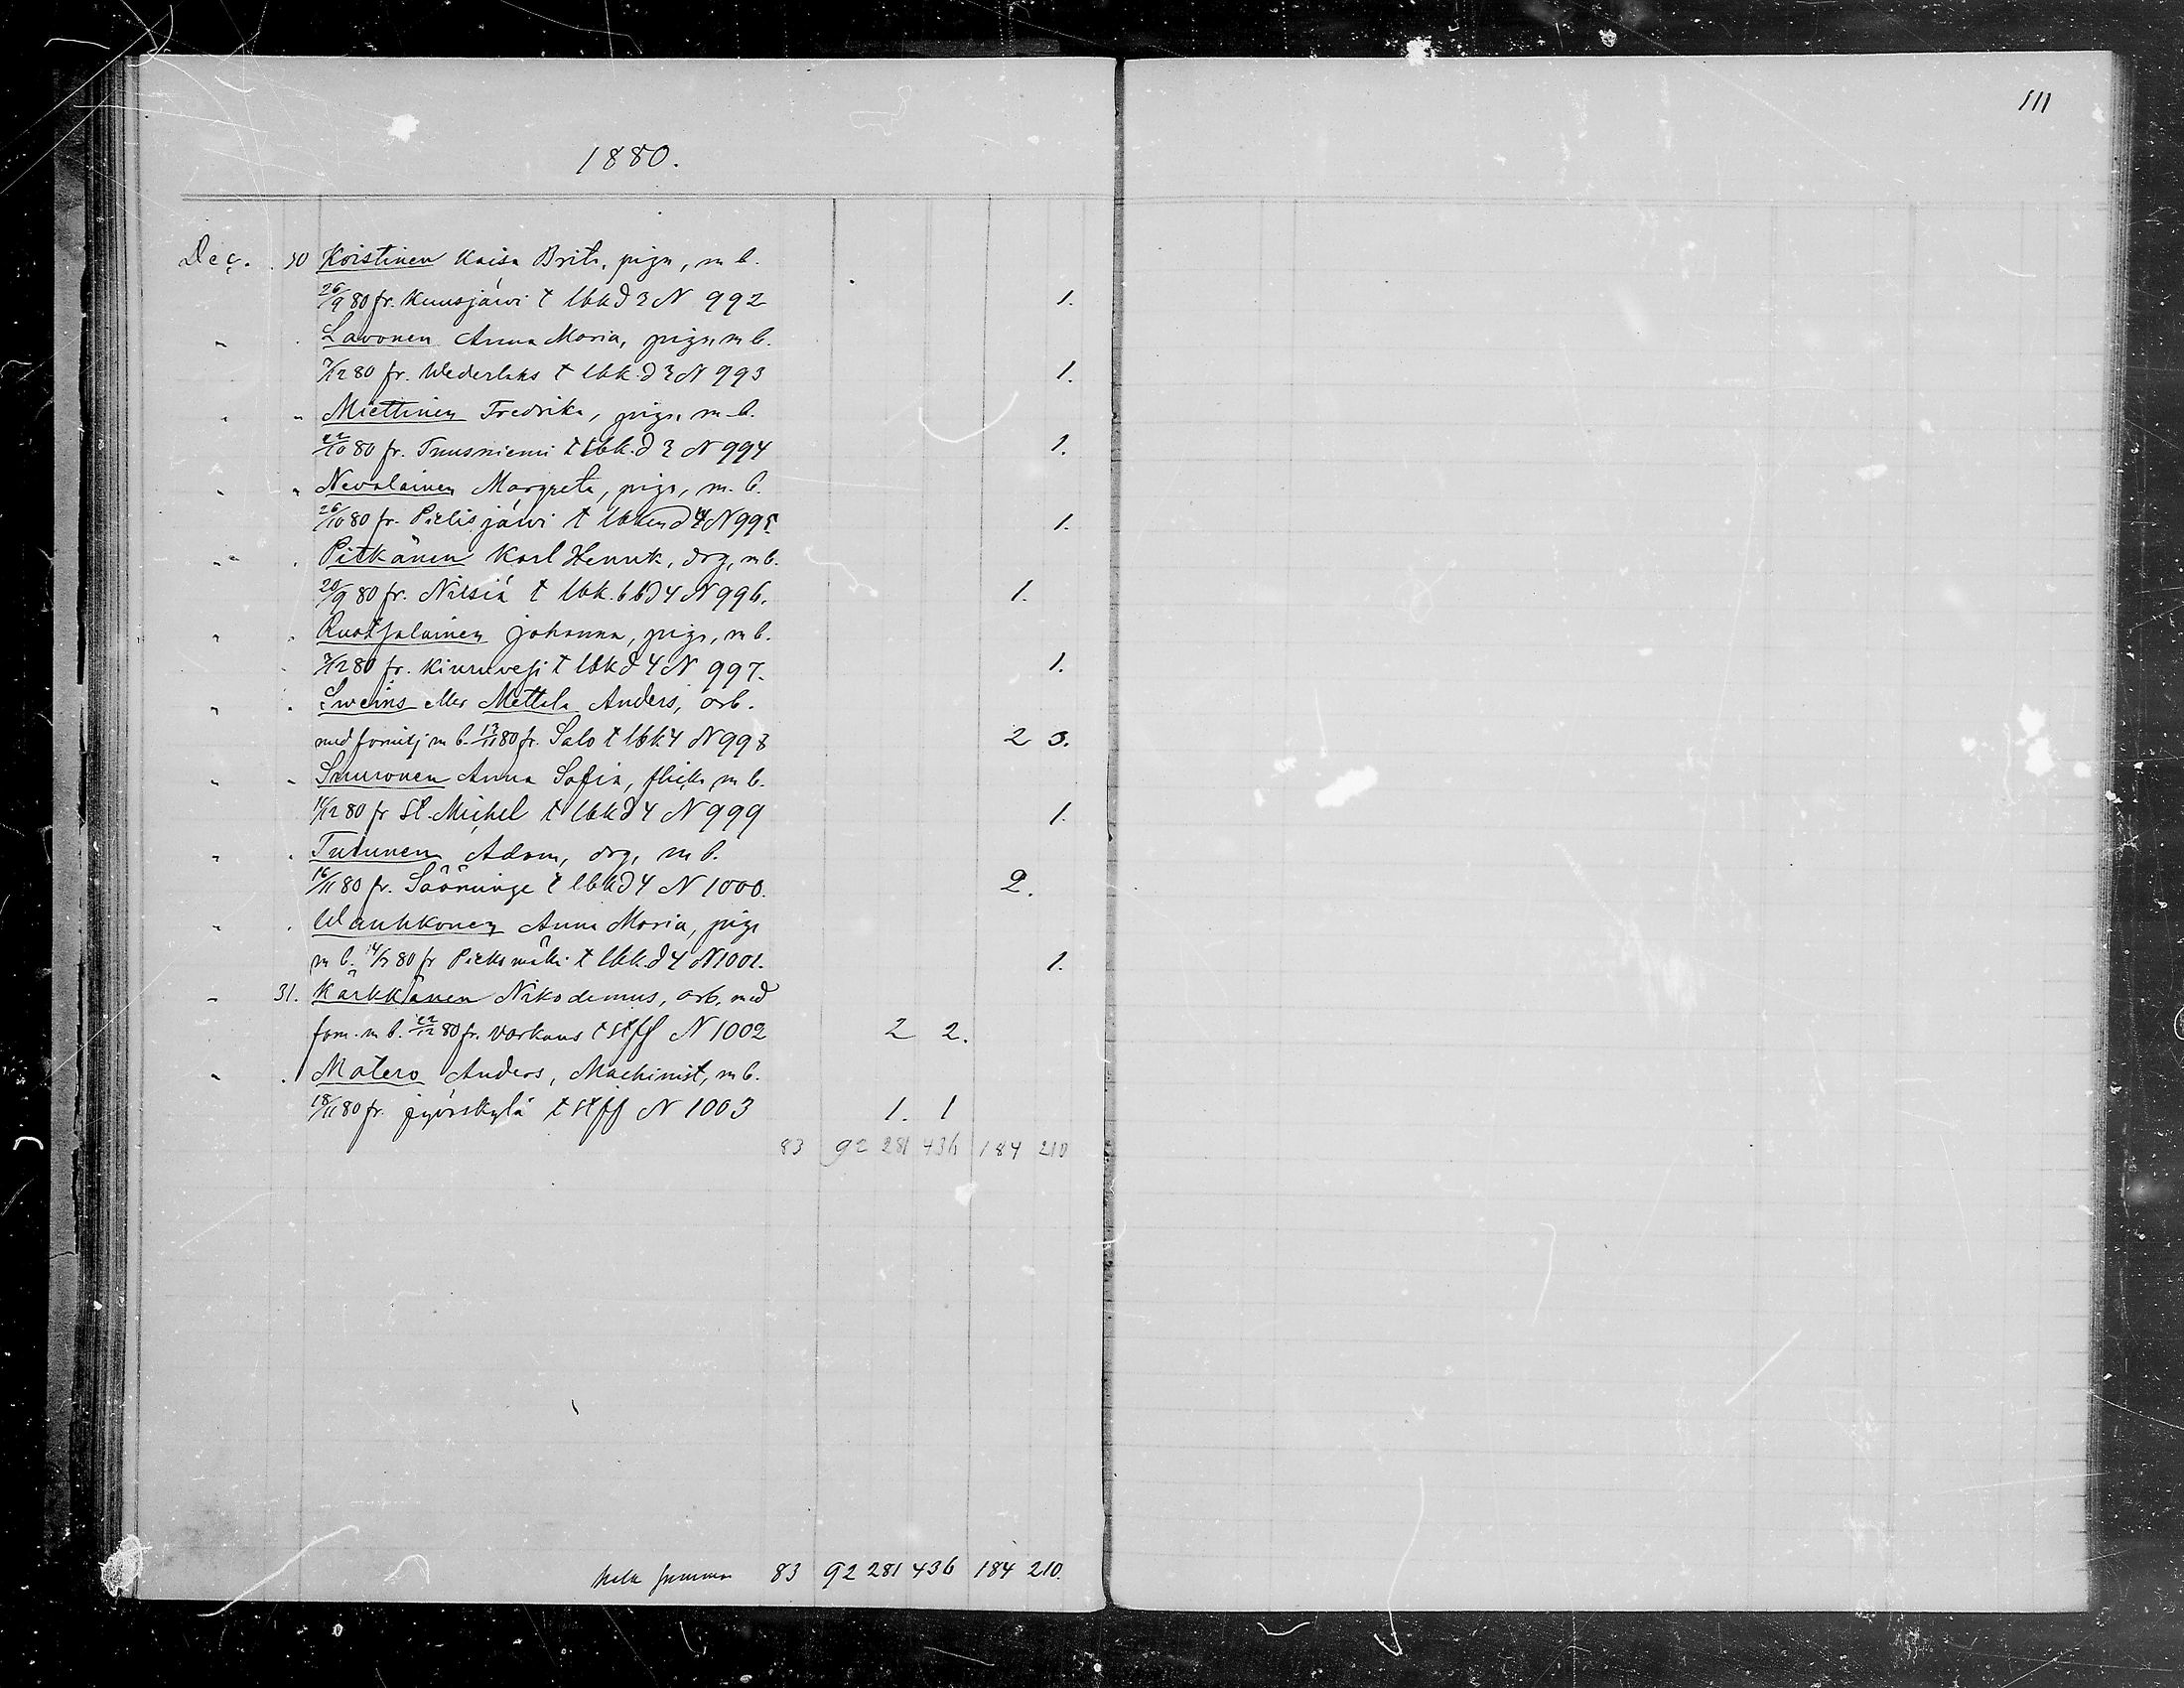 111
1880.
Dec. 30 Koistinen Kaisa Brita, piga, m b.
26/9 80 fr. Kuusjärvi t lbk d 3 N 992 1.
" " Lavonen Anna Maria, piga, m b.
7/12 80 fr. Wederlaks t lbk. d 3 N 993 1.
" " Miettinen Fredrika, piga, m b.
22/10 80 fr. Tuusniemi t lbk. d 3 N 994 1.
" " Nevalainen Margreta, piga, m. b.
26/10 80 fr. Pielisjärvi t d 4 N 995. 1.
" " Pitkänen Karl Henrik, drg, m b.
20/9 80 fr. Nilsiä t lbk. bb d 4 N 996. 1.
" " Ruotsalainen Johanna, piga, m b.
7/12 80 fr. Kiuruvesi t lbk d 4 N 997. 1.
" " Sweins eller Mettala Anders, arb.
med familj m b. 13/11 80 fr. Salo t lbk 4 N 998 2 3.
" " Suuronen Anna Sofia, flicka, m b.
14/12 80 fr St. Michel t lbk d 4 N 999 1.
" " Turunen Adam, drg, m b.
16/11 80 fr. Sääminge t lbk d 4 N 1000. 2.
" " Wauhkonen Anna Maria, piga
m b. 80 fr Pieksmäki t lbk. d 4 N 1001. 1.
" 31. Karkkänen Nikodemus, arb. med
fam. m b. 22/12 80 fr. Varkaus t st ff N 1002 2 2.
" " Matero Anders, Machinist, m b.
18/11 80 fr. jyväskylä t st ff N 1003 1. 1
83 92 281 436 184 210
hela summan 83 92 281 436 184 210.